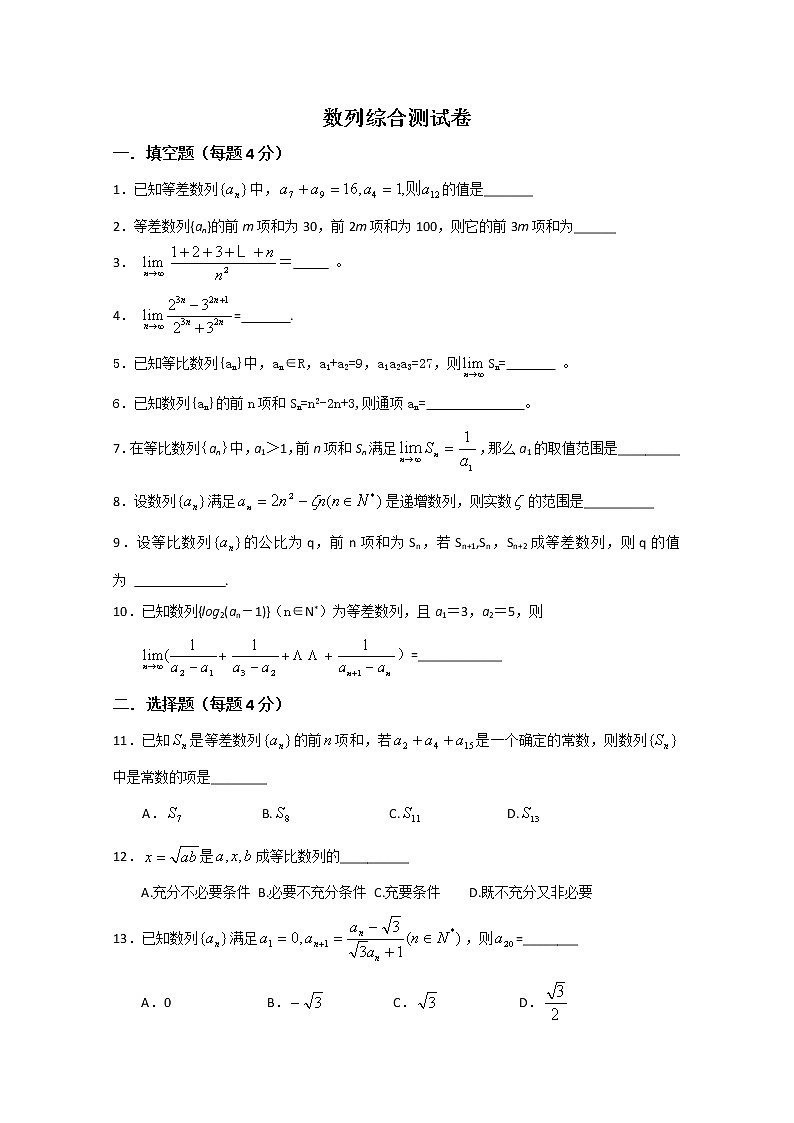 数列综合测试卷
一．填空题（每题4分）
1．已知等差数列{aₙ}中，a₇＋a₉＝16,a₄＝1,则a₁₂的值是_______
2．等差数列{aₙ}的前m项和为30，前2m项和为100，则它的前3m项和为______
3．lim_{n→∞} (1+2+3+L +n)/n²＝_____ 。
4．lim_{n→∞} (2³ⁿ－3²ⁿ⁺¹)/(2³ⁿ＋3²ⁿ)=_______.
5．已知等比数列{aₙ}中，aₙ∈R，a₁+a₂=9，a₁a₂a₃=27，则lim_{n→∞} Sₙ=_______ 。
6．已知数列{aₙ}的前n项和Sₙ=n²−2n+3,则通项aₙ=______________。
7.在等比数列{aₙ}中,a₁＞1,前n项和Sₙ满足lim_{n→∞} Sₙ＝1/a₁,那么a₁的取值范围是_________
8.设数列{aₙ}满足aₙ＝2n²－ζn(n∈N*)是递增数列，则实数ζ的范围是__________
9．设等比数列{aₙ}的公比为q，前n项和为Sₙ，若Sₙ₊₁,Sₙ，Sₙ₊₂成等差数列，则q的值
为 _____________.
10．已知数列{log₂(aₙ－1)}（n∈N*）为等差数列，且a₁＝3，a₂＝5，则
lim_{n→∞}(1/(a₂－a₁)+1/(a₃－a₂)+ΛΛ+1/(aₙ₊₁－aₙ)）=____________
二．选择题（每题4分）
11．已知Sₙ是等差数列{aₙ}的前n项和，若a₂＋a₄＋a₁₅是一个确定的常数，则数列{Sₙ}
中是常数的项是________
A．S₇ B.S₈ C.S₁₁ D.S₁₃
12．x＝√(ab)是a,x,b成等比数列的__________
A.充分不必要条件 B.必要不充分条件 C.充要条件 D.既不充分又非必要
13．已知数列{aₙ}满足a₁＝0,aₙ₊₁＝(aₙ－√3)/(√3aₙ＋1)(n∈N*)，则a₂₀=________
A．0 B．－√3 C．√3 D．√3/2